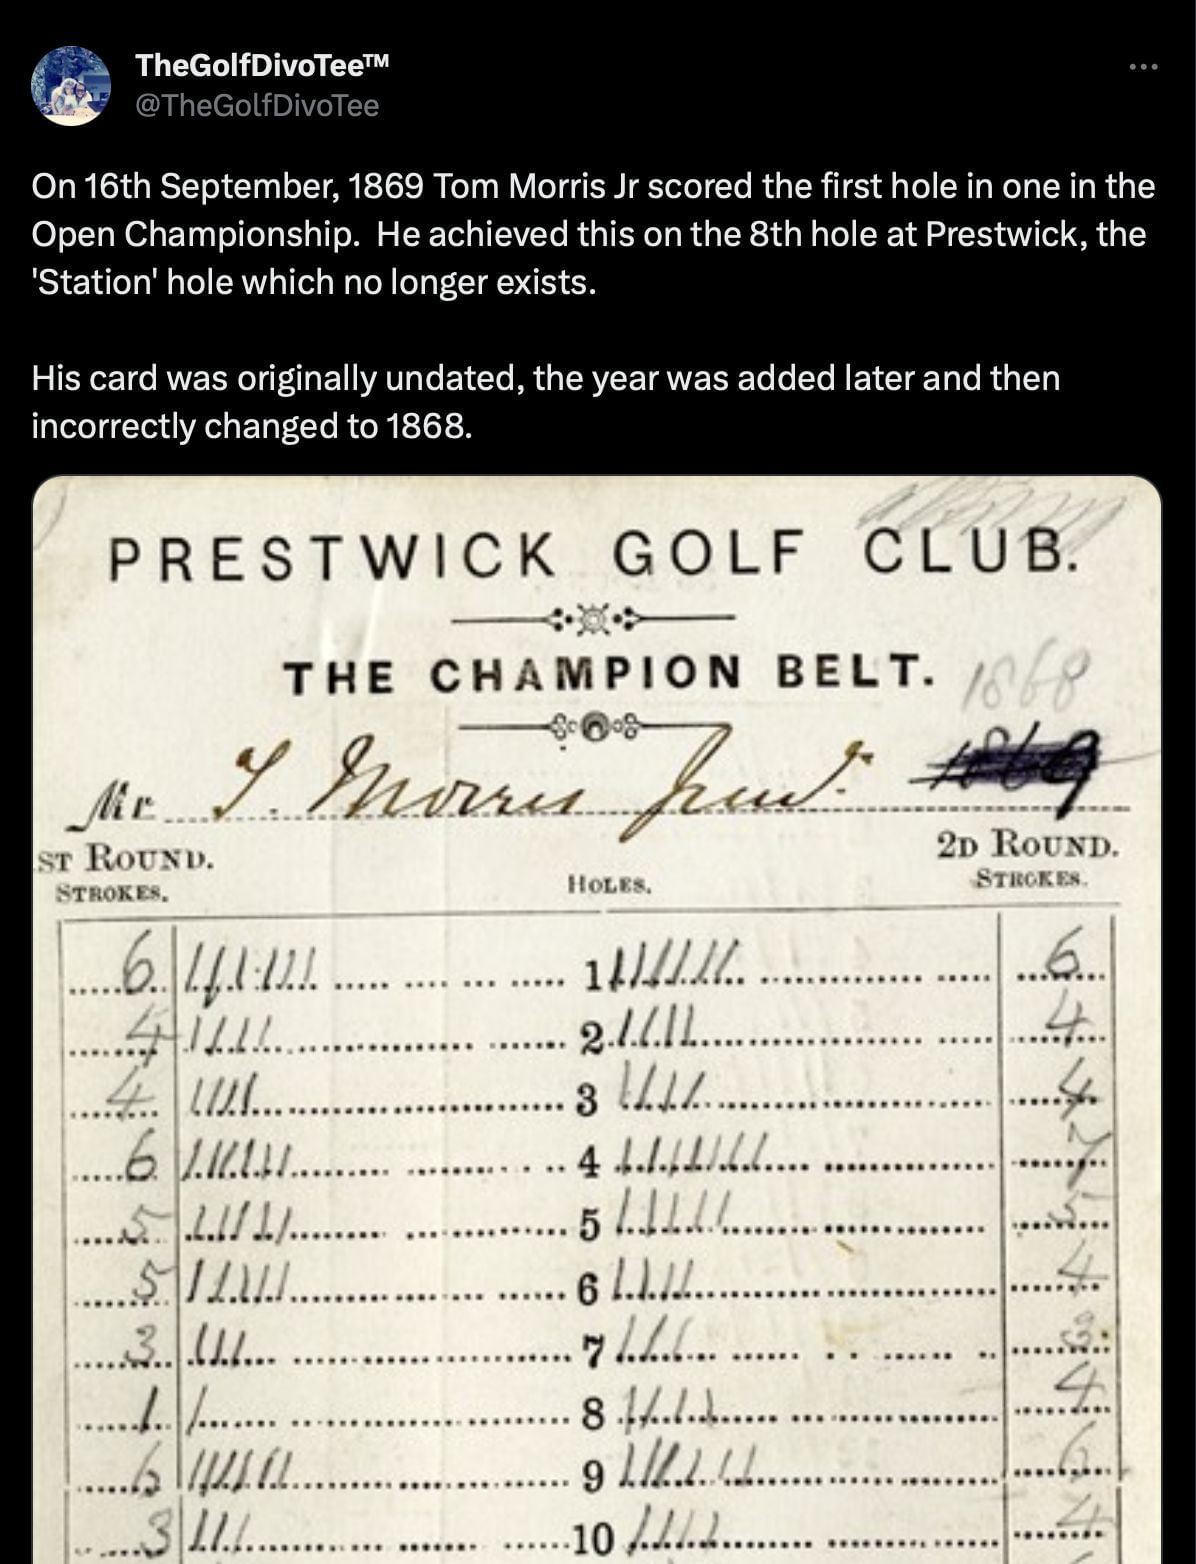 TheGolfDivoTee™
@TheGolfDivoTee
On 16th September, 1869 Tom Morris Jr scored the first hole in one in the
Open Championship.  He achieved this on the 8th hole at Prestwick, the
'Station' hole which no longer exists.
His card was originally undated, the year was added later and then
incorrectly changed to 1868.
PRESTWICK GOLF CLUB.
THE CHAMPION BELT. 1868
Mr T. Morris Junr. 1869
ST ROUND. 2D ROUND.
STROKES. HOLES. STROKES.
6 1 6
4 2 4
4 3 4
6 4 7
5 5 5
5 6 4
3 7 3
1 8 4
6 9 6
3 10 4